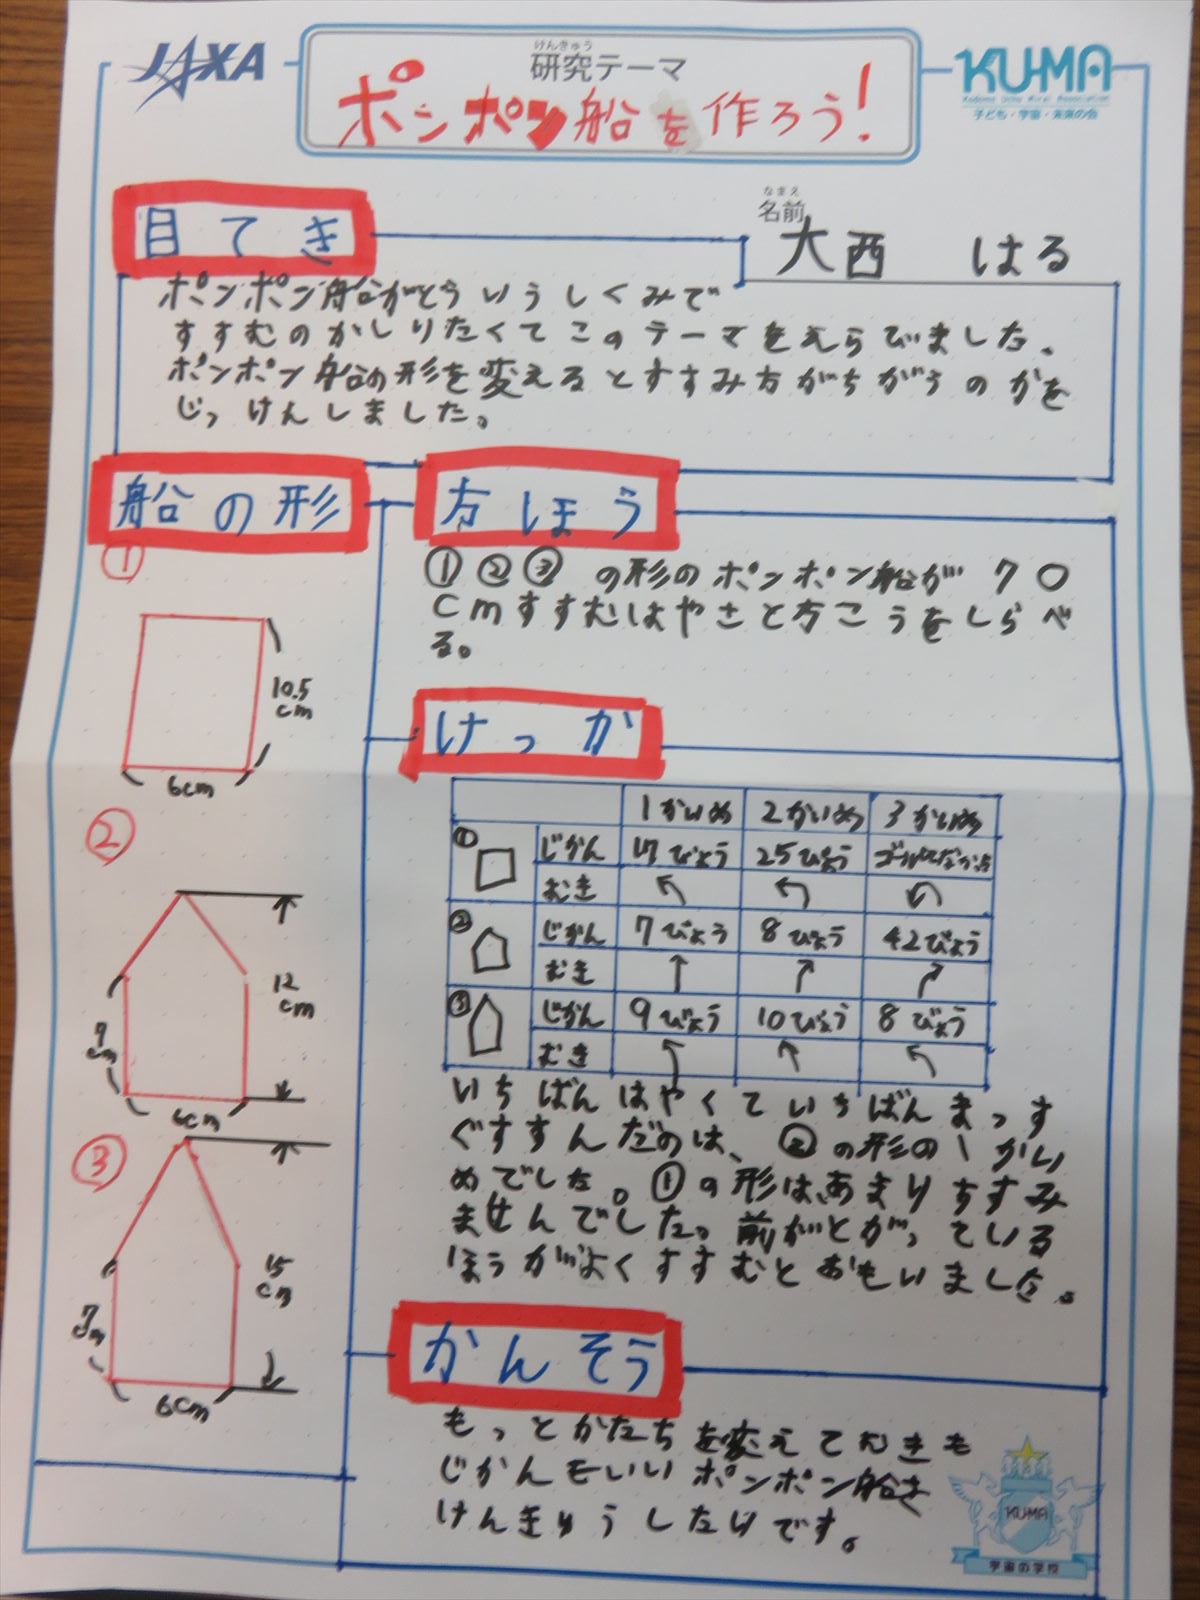 JAXA
けんきゅう
研究テーマ
KU-MA
Kodomo Uchu Mirai Association
子ども・宇宙・未来の会
ポンポン船を作ろう!
なまえ
名前
大西 はる
目てき
ポンポン船がどういうしくみで
すすむのかしりたくてこのテーマをえらびました。
ポンポン船の形を変えるとすすみ方がちがうのかを
じっけんしました。
船の形
①
10.5
cm
6cm
②
12
cm
7
cm
6cm
③
15
cm
7
cm
6cm
方ほう
①②③の形のポンポン船が70
cmすすむはやさと方こうをしらべ
る。
けっか
1かいめ 2かいめ 3かいめ
① じかん 17びょう 25びょう
むき ↖ ↖
② じかん 7びょう 8びょう 42びょう
むき ↑ ↗ ↗
③ じかん 9びょう 10びょう 8びょう
むき ↖ ↖ ↖
いちばんはやくていちばんまっす
ぐすすんだのは、②の形の1かい
めでした。①の形は、あまりすすみ
ませんでした。前がとがっている
ほうがよくすすむとおもいました。
かんそう
もっとかたちを変えてむきも
じかんもいいポンポン船を
けんきゅうしたいです。
KUMA
宇宙の学校